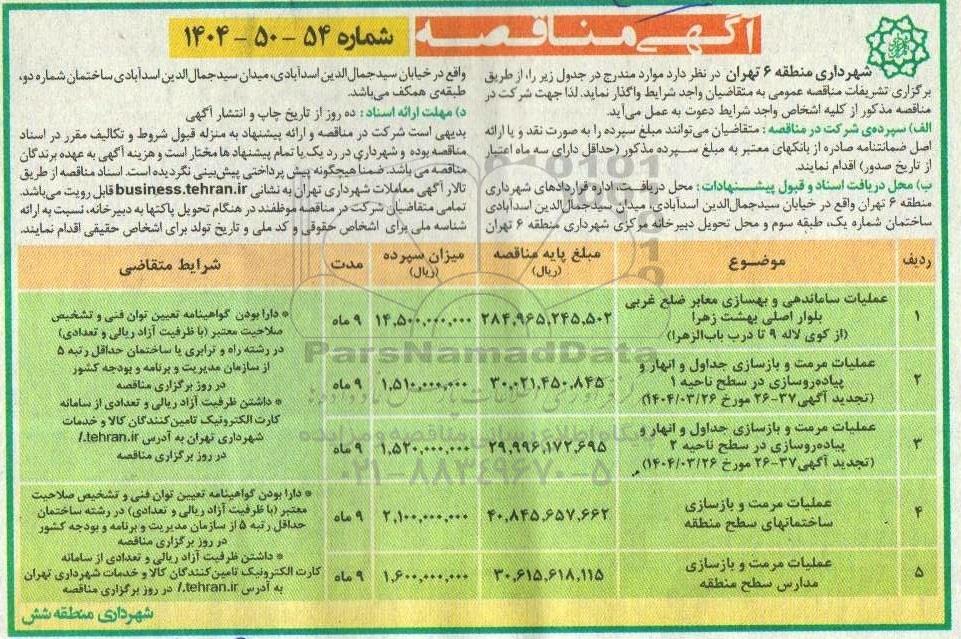 آگهی مناقصه
شماره ۵۴ - ۵۰ - ۱۴۰۴
شهرداری منطقه ۶ تهران در نظر دارد موارد مندرج در جدول زیر را، از طریق
برگزاری تشریفات مناقصه عمومی به متقاضیان واجد شرایط واگذار نماید. لذا جهت شرکت در
مناقصه مذکور از کلیه اشخاص واجد شرایط دعوت به عمل می‌آید.
الف) سپرده‌ی شرکت در مناقصه: متقاضیان می‌توانند مبلغ سپرده را به صورت نقد و یا ارائه
اصل ضمانتنامه صادره از بانکهای معتبر به مبلغ سپرده مذکور (حداقل دارای سه ماه اعتبار
از تاریخ صدور) اقدام نمایند.
ب) محل دریافت اسناد و قبول پیشنهادات: محل دریافت، اداره قراردادهای شهرداری
منطقه ۶ تهران واقع در خیابان سیدجمال‌الدین اسدآبادی، میدان سیدجمال‌الدین اسدآبادی
ساختمان شماره یک، طبقه سوم و محل تحویل دبیرخانه مرکزی شهرداری منطقه ۶ تهران
واقع در خیابان سیدجمال‌الدین اسدآبادی، میدان سیدجمال‌الدین اسدآبادی ساختمان شماره دو،
طبقه‌ی همکف می‌باشد.
د) مهلت ارائه اسناد: ده روز از تاریخ چاپ و انتشار آگهی
بدیهی است شرکت در مناقصه و ارائه پیشنهاد به منزله قبول شروط و تکالیف مقرر در اسناد
مناقصه بوده و شهرداری در رد یک یا تمام پیشنهادها مختار است و هزینه آگهی به عهده برندگان
مناقصه می باشد. ضمنا هیچگونه پیش پرداختی پیش‌بینی نگردیده است. اسناد مناقصه از طریق
تالار آگهی معاملات شهرداری تهران به نشانی business.tehran.ir قابل رویت می‌باشد.
تمامی متقاضیان شرکت در مناقصه موظفند در هنگام تحویل پاکتها به دبیرخانه، نسبت به ارائه
شناسه ملی برای اشخاص حقوقی و کد ملی و تاریخ تولد برای اشخاص حقیقی اقدام نمایند.
ردیف موضوع مبلغ پایه مناقصه (ریال) میزان سپرده (ریال) مدت شرایط متقاضی
۱ عملیات ساماندهی و بهسازی معابر ضلع غربی
بلوار اصلی بهشت زهرا
(از کوی لاله ۹ تا درب باب‌الزهرا)
۲۸۴,۹۶۵,۲۴۵,۵۰۲ ۱۴,۵۰۰,۰۰۰,۰۰۰ ۹ ماه
۲ عملیات مرمت و بازسازی جداول و انهار و
پیاده‌روسازی در سطح ناحیه ۱
(تجدید آگهی ۳۷-۲۶ مورخ ۱۴۰۴/۰۳/۲۶)
۳۰,۰۲۱,۴۵۰,۸۴۵ ۱,۵۱۰,۰۰۰,۰۰۰ ۹ ماه
۳ عملیات مرمت و بازسازی جداول و انهار و
پیاده‌روسازی در سطح ناحیه ۲
(تجدید آگهی ۳۷-۲۶ مورخ ۱۴۰۴/۰۳/۲۶)
۲۹,۹۹۶,۱۷۲,۶۹۵ ۱,۵۲۰,۰۰۰,۰۰۰ ۹ ماه
* دارا بودن گواهینامه تعیین توان فنی و تشخیص
صلاحیت معتبر (با ظرفیت آزاد ریالی و تعدادی)
در رشته راه و ترابری یا ساختمان حداقل رتبه ۵
از سازمان مدیریت و برنامه و بودجه کشور
در روز برگزاری مناقصه
* داشتن ظرفیت آزاد ریالی و تعدادی از سامانه
کارت الکترونیک تامین‌کنندگان کالا و خدمات
شهرداری تهران به آدرس tehran.ir./
در روز برگزاری مناقصه
۴ عملیات مرمت و بازسازی
ساختمانهای سطح منطقه
۴۰,۸۴۵,۶۵۷,۶۶۲ ۲,۱۰۰,۰۰۰,۰۰۰ ۹ ماه
۵ عملیات مرمت و بازسازی
مدارس سطح منطقه
۳۰,۶۱۵,۶۱۸,۱۱۵ ۱,۶۰۰,۰۰۰,۰۰۰ ۹ ماه
* دارا بودن گواهینامه تعیین توان فنی و تشخیص صلاحیت
معتبر (با ظرفیت آزاد ریالی و تعدادی) در رشته ساختمان
حداقل رتبه ۵ از سازمان مدیریت و برنامه و بودجه کشور
در روز برگزاری مناقصه
* داشتن ظرفیت آزاد ریالی و تعدادی از سامانه
کارت الکترونیک تامین‌کنندگان کالا و خدمات شهرداری تهران
به آدرس tehran.ir./ در روز برگزاری مناقصه
شهرداری منطقه شش
ParsNamadData
۰۲۱-۸۸۳۴۹۶۷۰-۵